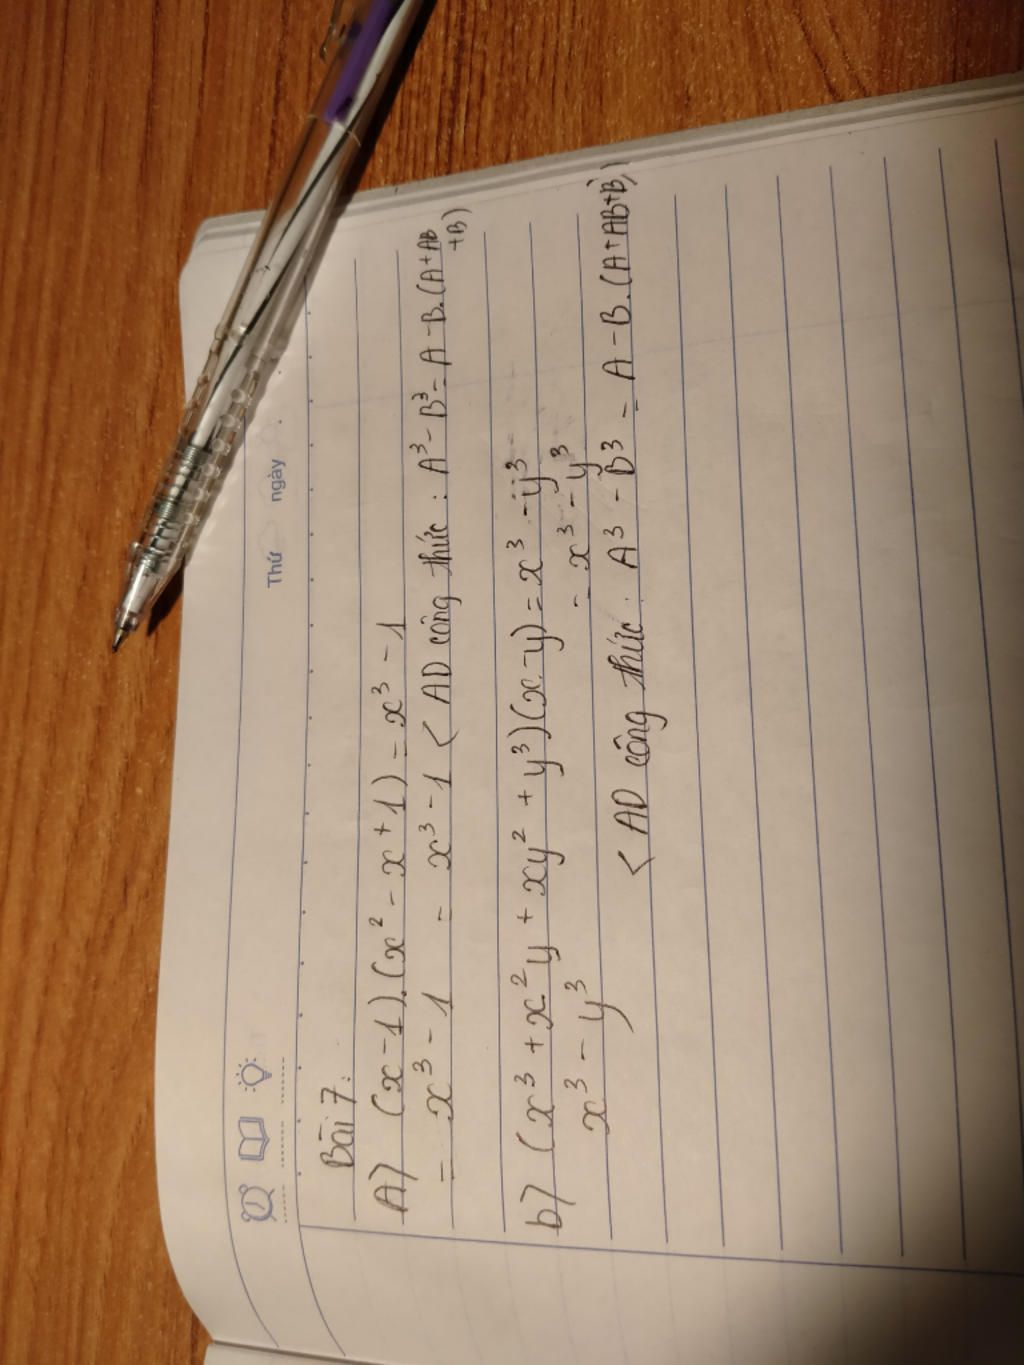 Thứ ngày
Bài 7:
A) (x-1).(x² - x + 1) = x³ - 1
= x³ - 1 = x³ - 1 < AD công thức : A³ - B³ = A - B.(A+AB
+B)
b) (x³ + x²y + xy² + y³)(x-y) = x³ - y³
x³ - y³ = x³ - y³
< AD công thức : A³ - B³ = A - B.(A+AB+B)